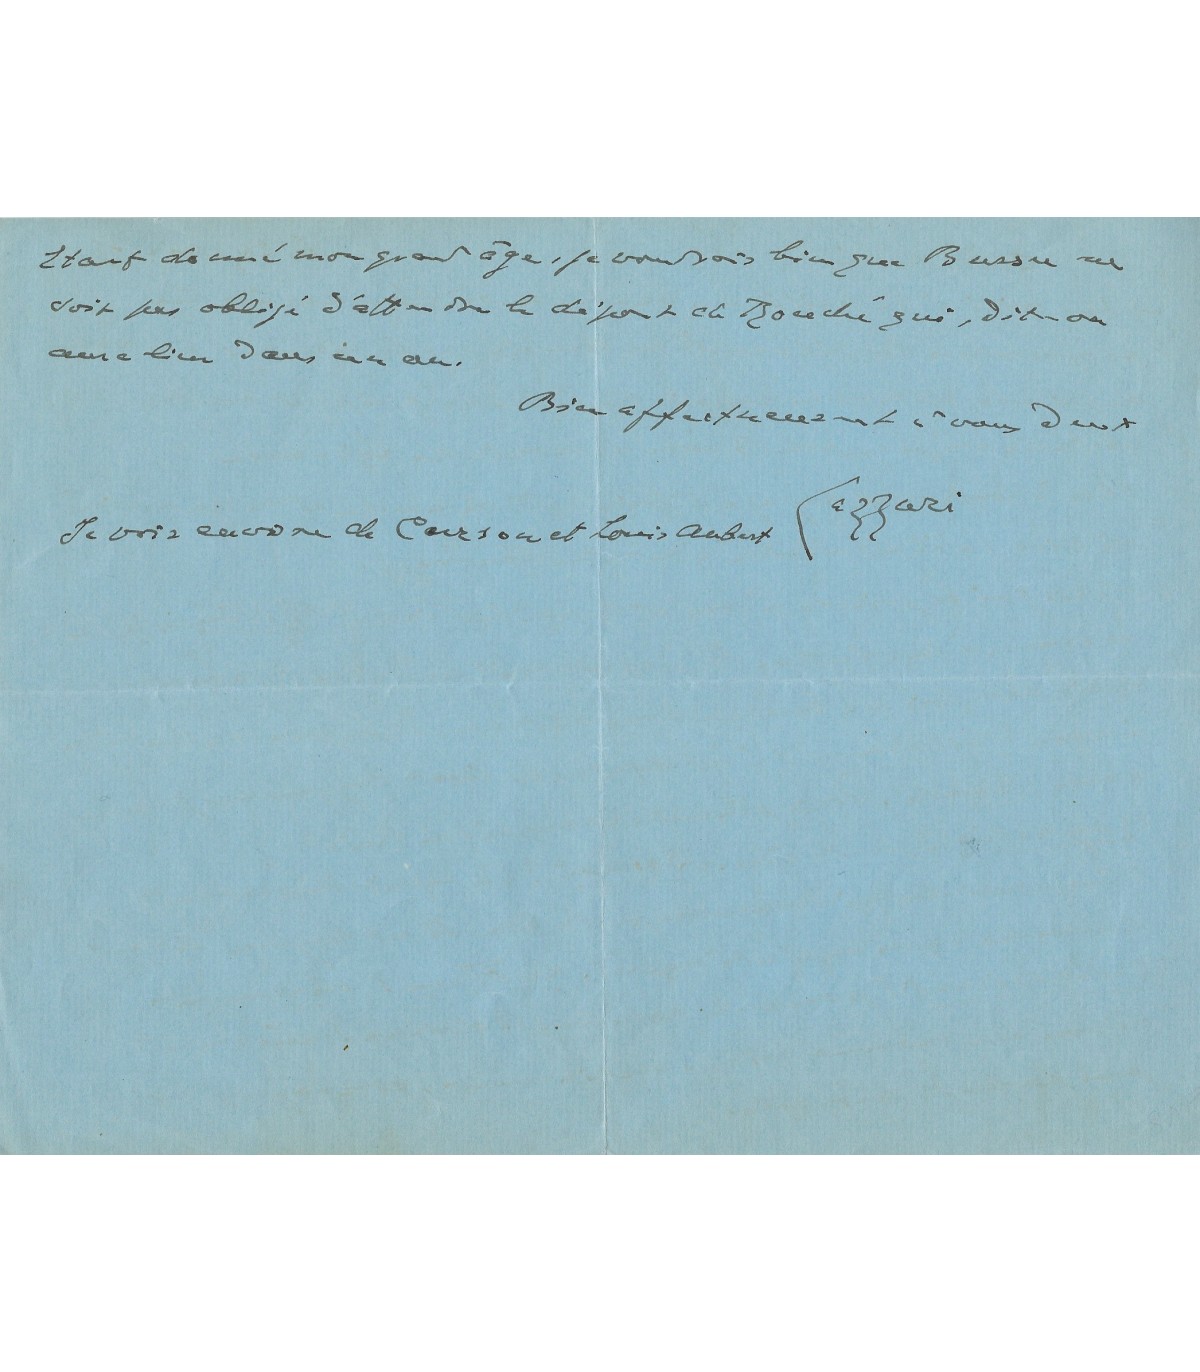 Etant donné mon grand âge, je voudrais bien que Busser ne
soit pas obligé d'attendre le départ de Rouché qui, dit-on
aura lieu dans un an.
Bien affectueusement à vous deux
Lazzari
Je vois encore de Curzon et Louis Aubert